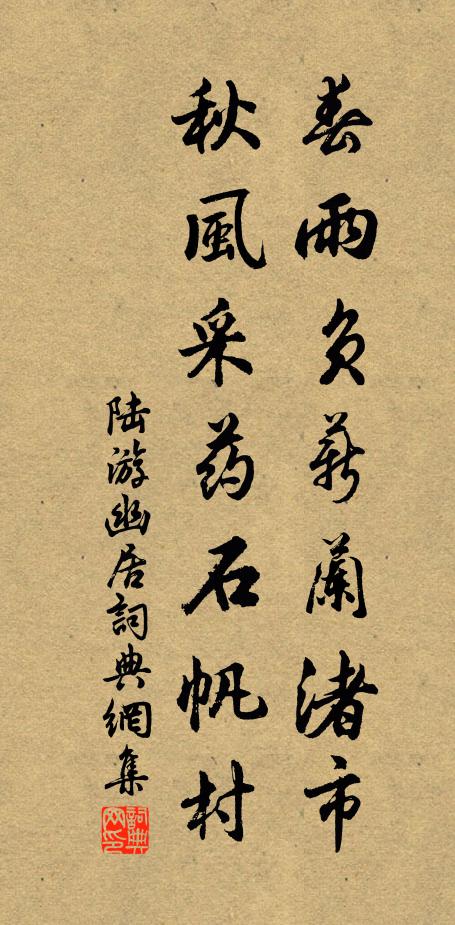 春雨负薪蘭渚市
秋風采药石帆村
陆游幽居詞典網集
詞典
网印